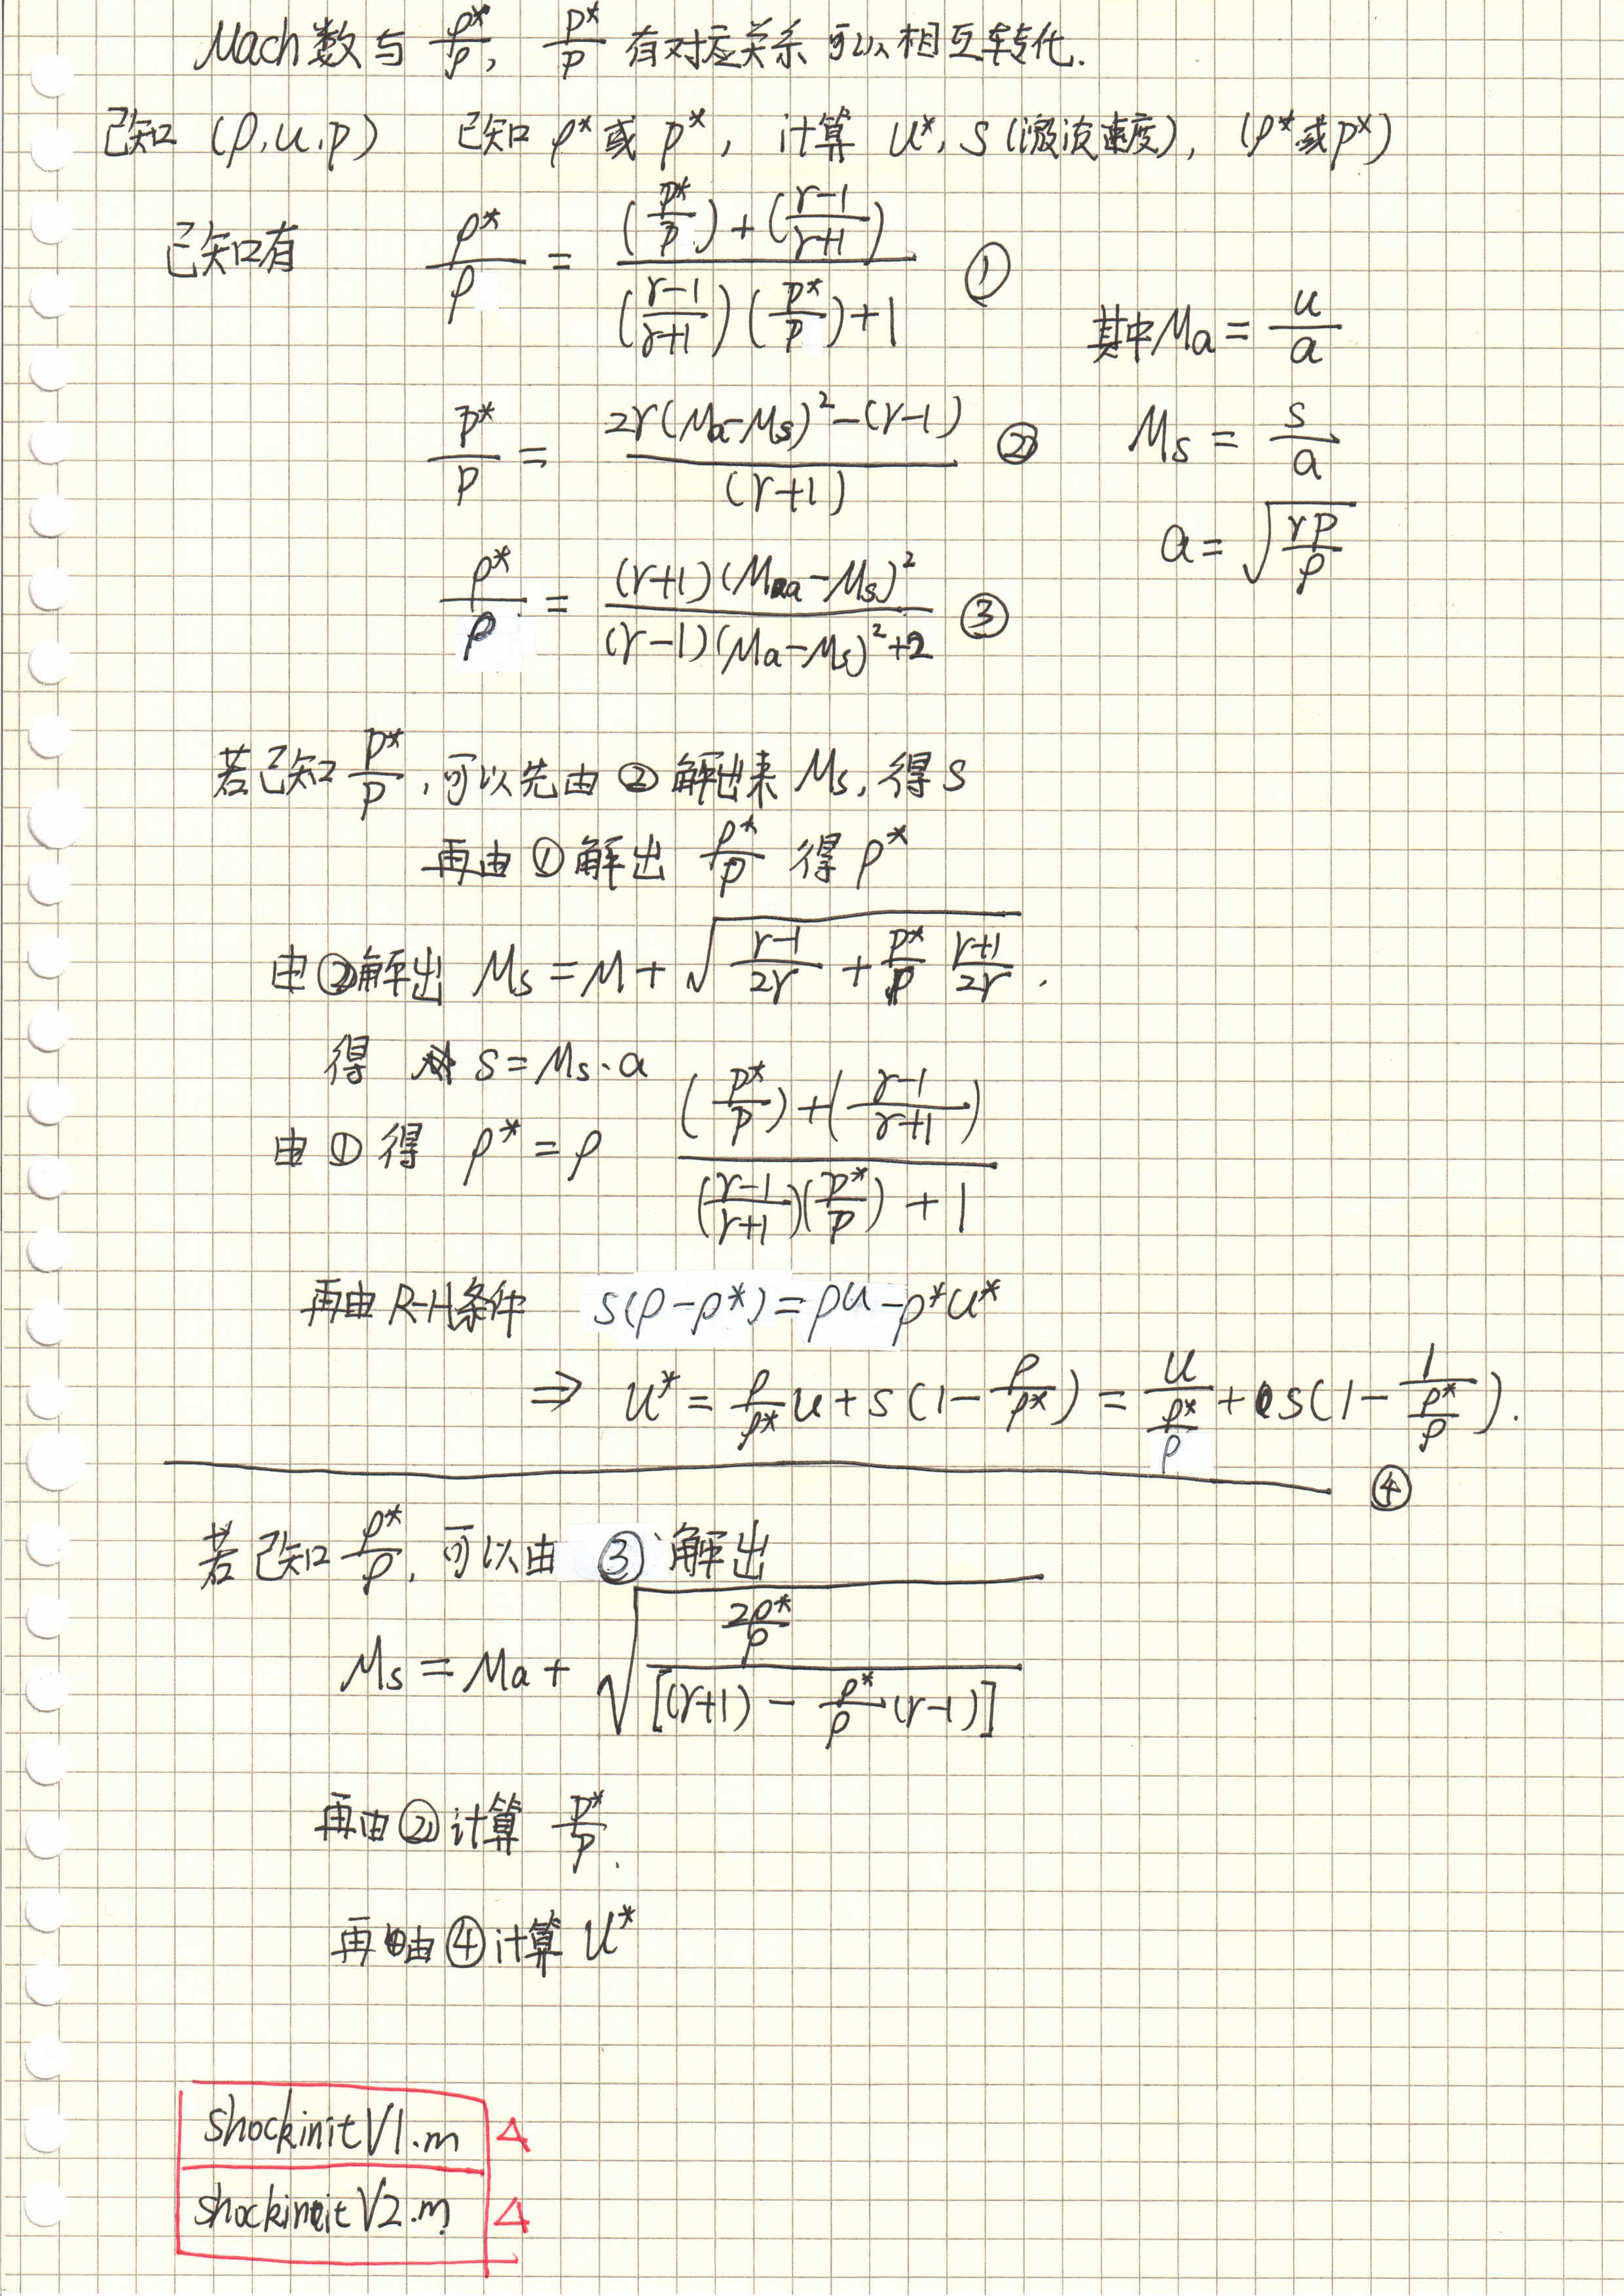 Mach数与 ρ*/ρ, p*/p 有对应关系 可以相互转化.
已知 (ρ,u,p) 已知 ρ* 或 p*, 计算 u*, S (激波速度), (ρ*或p*)
已知有 ρ*/ρ = ((p*/p) + ((γ-1)/(γ+1))) / (((γ-1)/(γ+1)) (p*/p) + 1) ①
其中Ma = u/a
p*/p = (2γ(Ma-Ms)² - (γ-1)) / (γ+1) ②
Ms = s/a
a = √(γp/ρ)
ρ*/ρ = ((γ+1)(Ma-Ms)²) / ((γ-1)(Ma-Ms)²+2) ③
若已知 p*/p, 可以先由 ② 解出来 Ms, 得 S
再由 ① 解出 ρ*/ρ 得 ρ*
由 ② 解出 Ms = M + √((γ-1)/2γ + p*/p (γ+1)/2γ).
得 S = Ms·a
由 ① 得 ρ* = ρ ((p*/p) + ((γ-1)/(γ+1))) / (((γ-1)/(γ+1))(p*/p) + 1)
再由 R-H条件 S(ρ-ρ*) = ρu-ρ*u*
⇒ u* = ρ/ρ* u + S (1 - ρ/ρ*) = u/(ρ*/ρ) + S(1 - 1/(ρ*/ρ)).
④
若已知 ρ*/ρ, 可以由 ③ 解出
Ms = Ma + √((2ρ*/ρ) / [(γ+1) - ρ*/ρ (γ-1)])
再由 ② 计算 p*/p.
再由 ④ 计算 u*
shockinitV1.m Δ
shockinitV2.m Δ